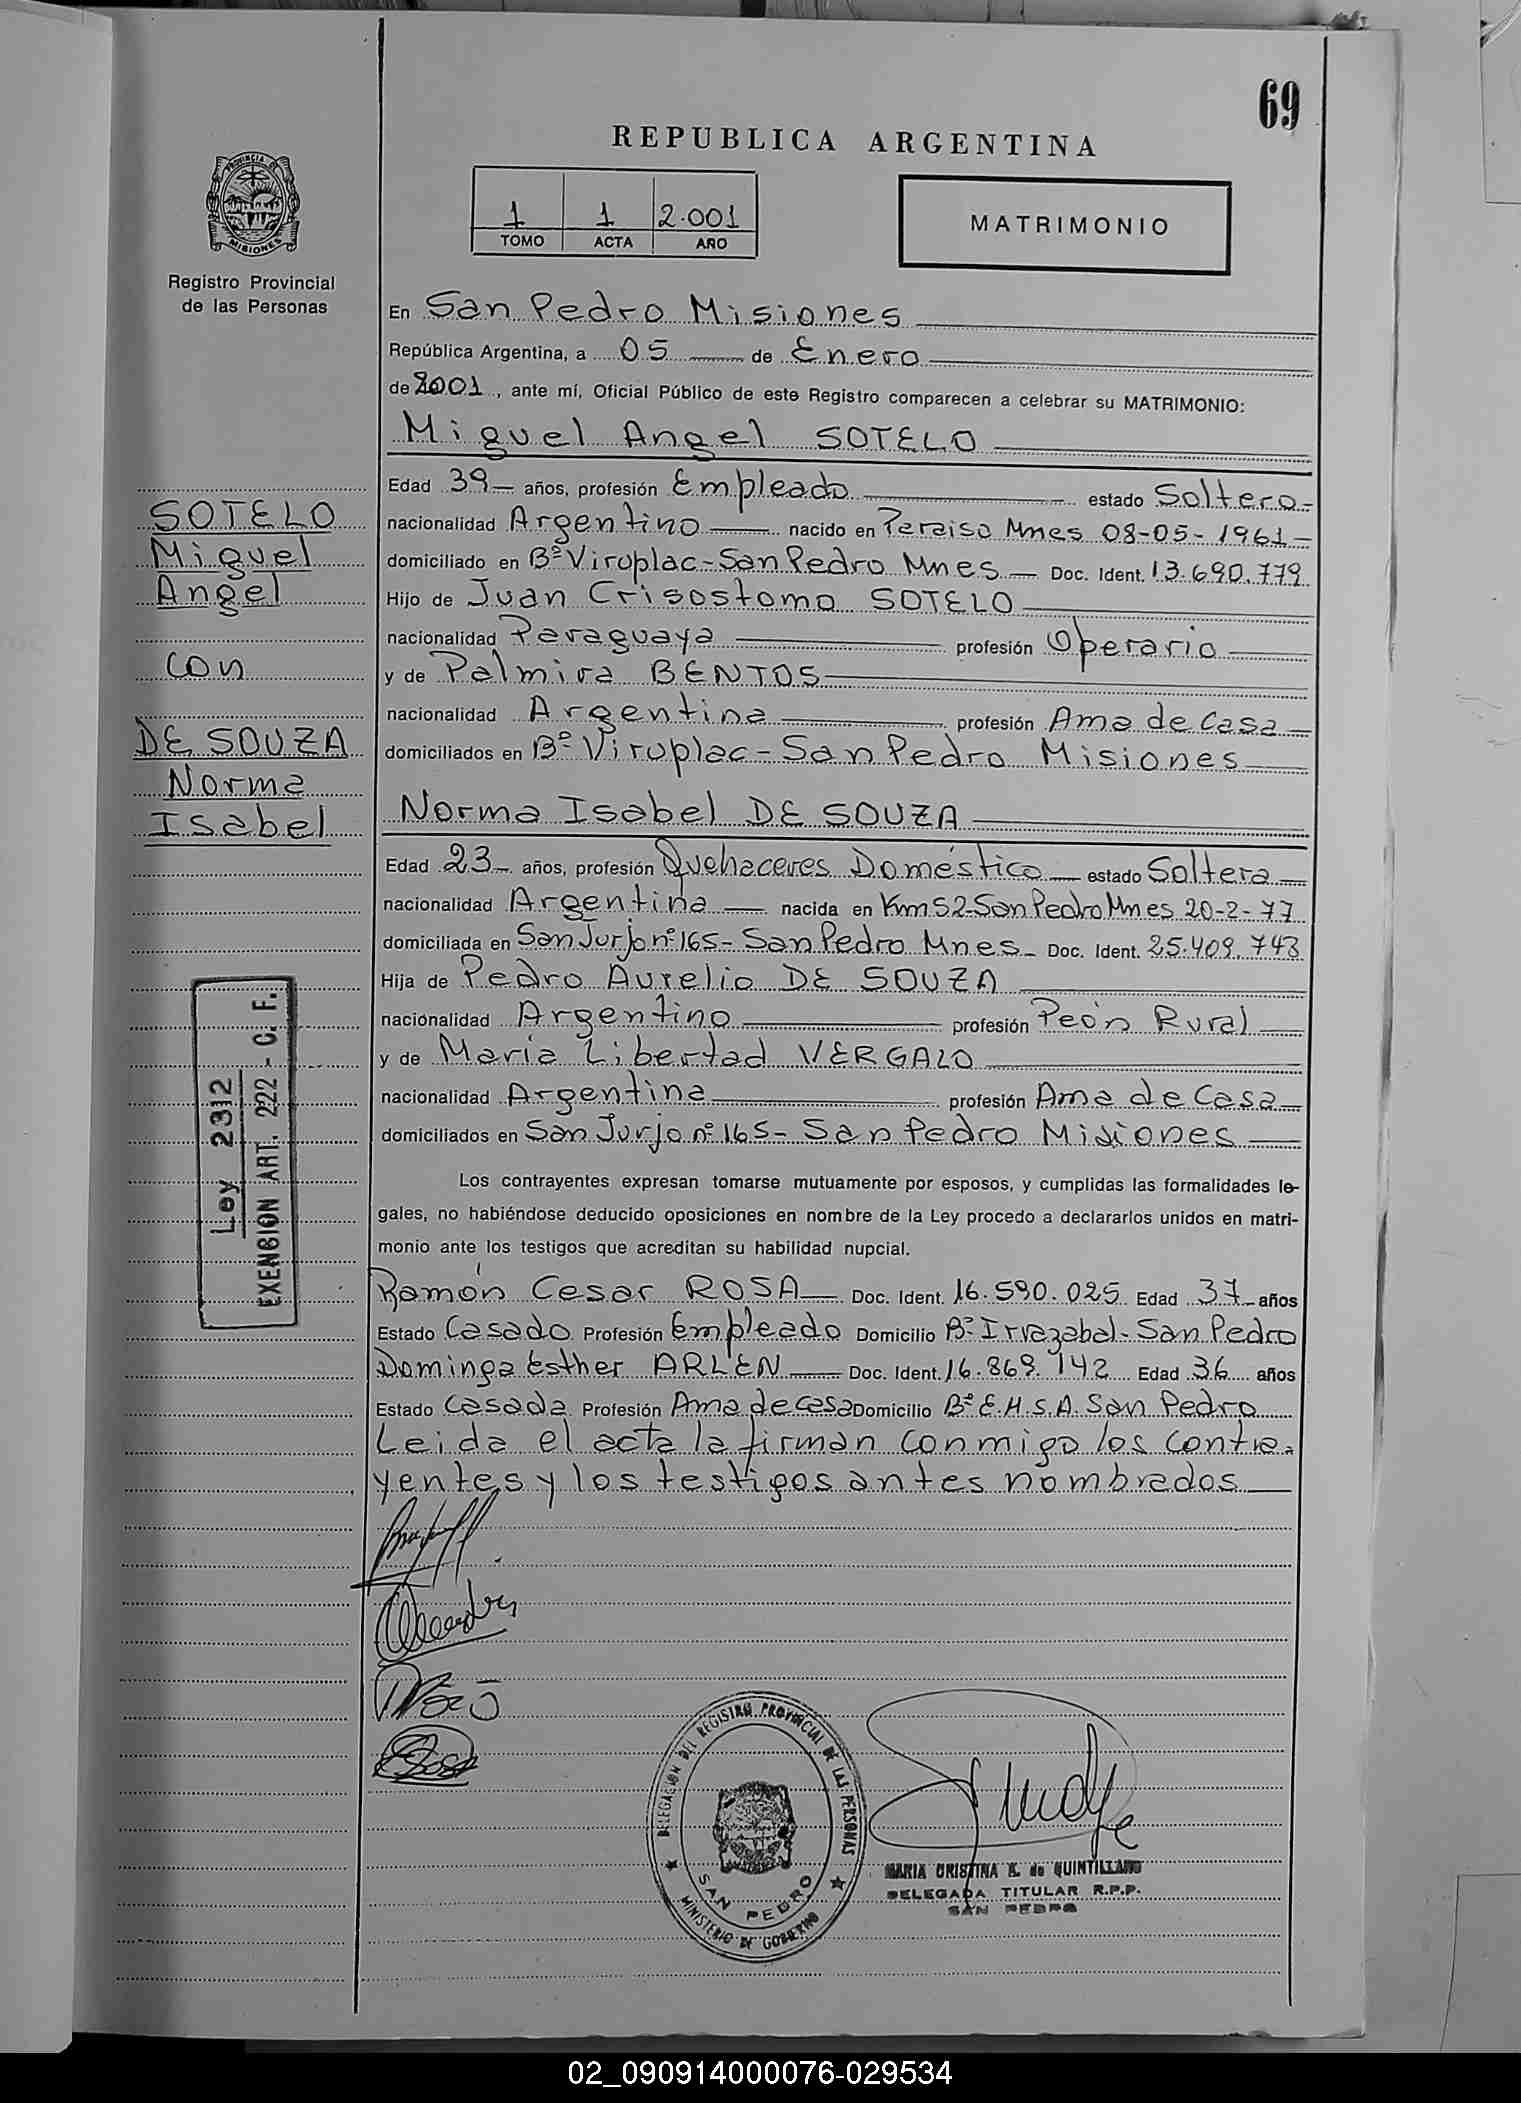 69
REPUBLICA ARGENTINA
PROVINCIA DE
MISIONES
Registro Provincial
de las Personas
1 1 2.001
TOMO ACTA AÑO
MATRIMONIO
En San Pedro Misiones
República Argentina, a 05 de Enero
de 2001, ante mí, Oficial Público de este Registro comparecen a celebrar su MATRIMONIO:
Miguel Angel SOTELO
Edad 39 años, profesión Empleado estado Soltero
nacionalidad Argentino nacido en Paraiso Mnes 08-05-1961
domiciliado en Bº Viruplac-San Pedro Mnes Doc. Ident. 13.690.779
Hijo de Juan Crisostomo SOTELO
nacionalidad Paraguaya profesión Operario
y de Palmira BENTOS
nacionalidad Argentina profesión Ama de Casa
domiciliados en Bº Viruplac-San Pedro Misiones
Norma Isabel DE SOUZA
Edad 23 años, profesión Quehaceres Doméstico estado Soltera
nacionalidad Argentina nacida en Km 52-San Pedro Mnes 20-2-77
domiciliada en San Jurjo nº 165-San Pedro Mnes Doc. Ident. 25.409.743
Hija de Pedro Aurelio DE SOUZA
nacionalidad Argentino profesión Peón Rural
y de Maria Libertad VERGALO
nacionalidad Argentina profesión Ama de Casa
domiciliados en San Jurjo nº 165-San Pedro Misiones
Los contrayentes expresan tomarse mutuamente por esposos, y cumplidas las formalidades le-
gales, no habiéndose deducido oposiciones en nombre de la Ley procedo a declararlos unidos en matri-
monio ante los testigos que acreditan su habilidad nupcial.
Ramón Cesar ROSA Doc. Ident. 16.590.025 Edad 37 años
Estado Casado Profesión Empleado Domicilio Bº Irrazabal-San Pedro
Dominga Esther ARLEN Doc. Ident. 16.869.142 Edad 36 años
Estado Casada Profesión Ama de casa Domicilio Bº E.H.S.A. San Pedro
Leida el acta la firman conmigo los contra-
yentes y los testigos antes nombrados
SOTELO
Miguel
Angel
con
DE SOUZA
Norma
Isabel
Ley 2312
EXENCION ART. 222 - C. F.
DELEGACION DEL REGISTRO PROVINCIAL DE LAS PERSONAS
SAN PEDRO
MINISTERIO DE GOBIERNO
MARIA CRISTINA K. de QUINTILLANO
DELEGADA TITULAR R.P.P.
SAN PEDRO
02_090914000076-029534